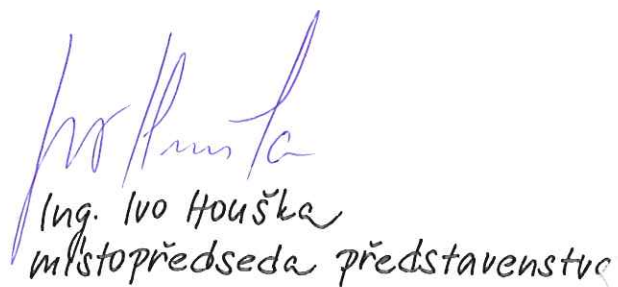 Ing. Ivo Houška
místopředseda představenstva